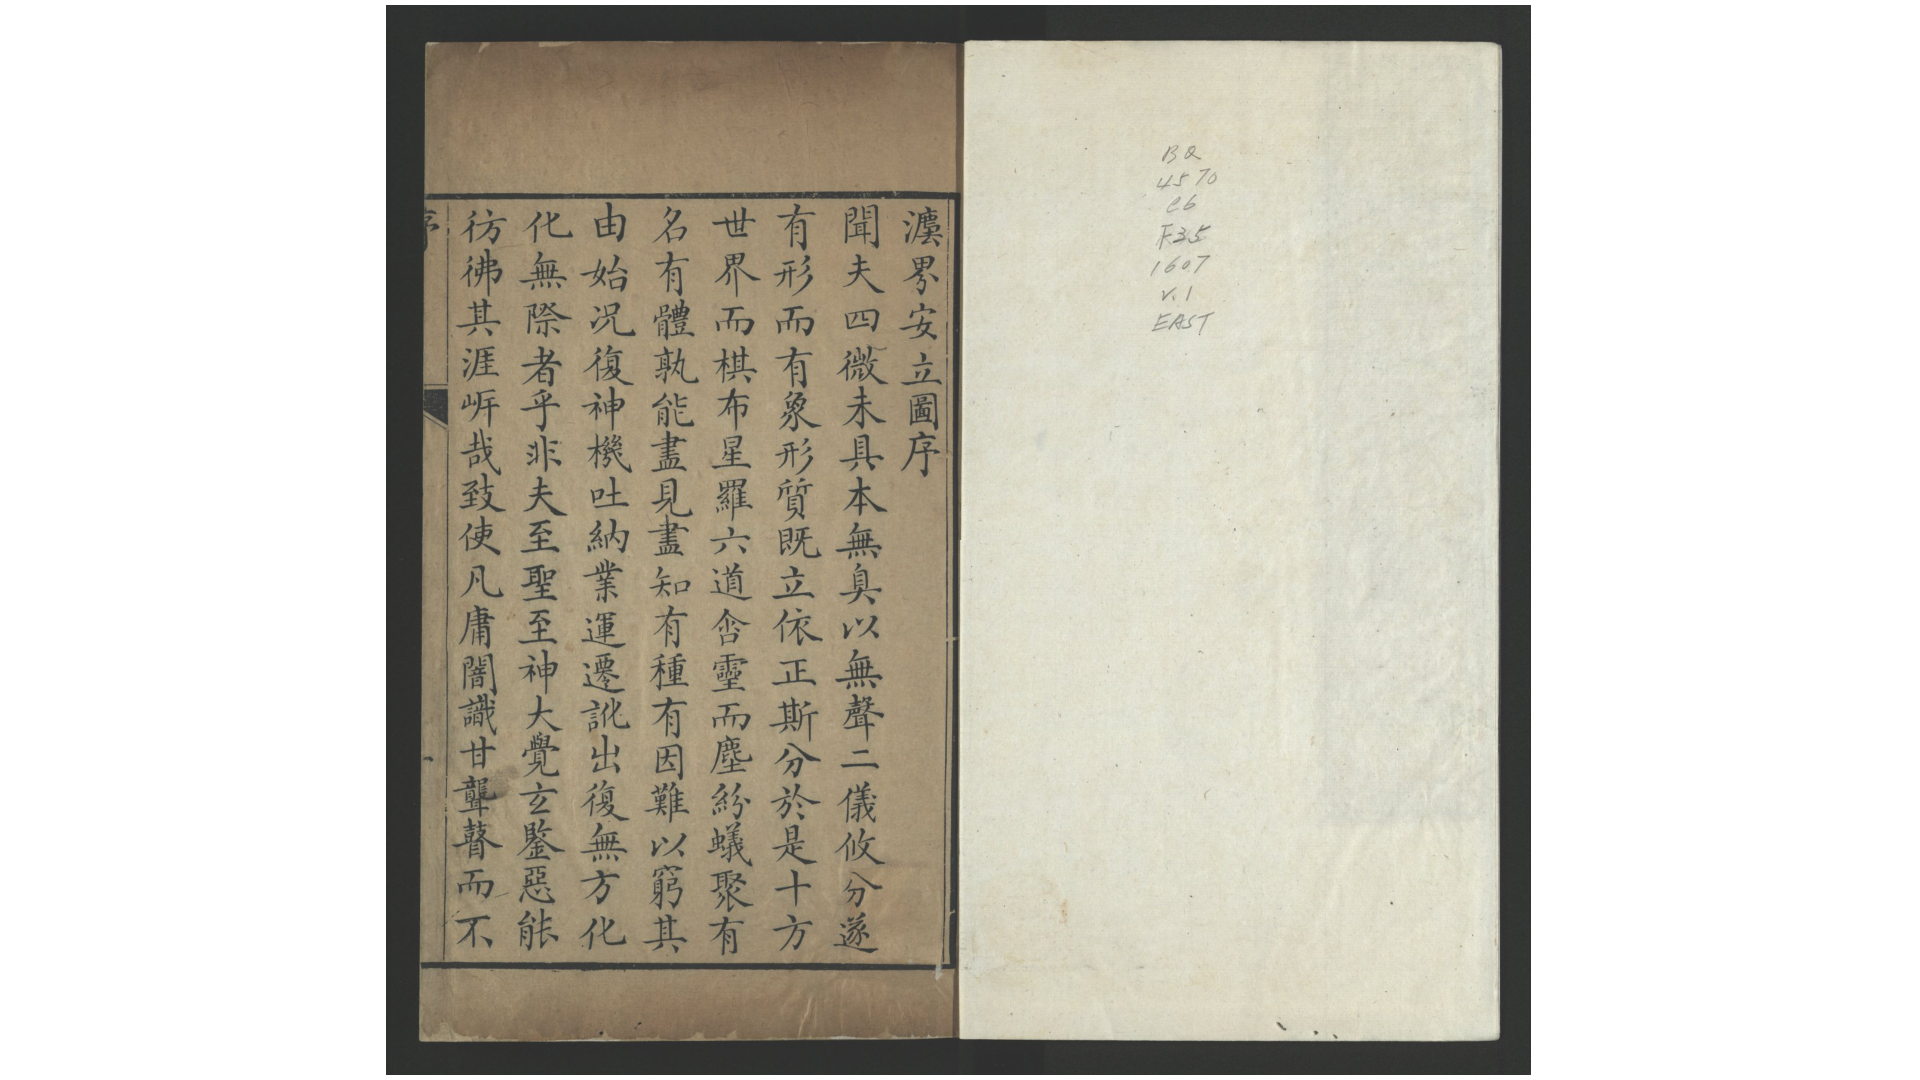 BQ
4570
C6
F35
1607
v.1
EAST
灋界安立圖序
聞夫四微未具本無臭以無聲二儀攸分遂
有形而有象形質既立依正斯分於是十方
世界而棋布星羅六道含靈而塵紛蟻聚有
名有體孰能盡見盡知有種有因難以窮其
由始况復神機吐納業運遷訛出復無方化
化無際者乎非夫至聖至神大覺玄鑒惡能
彷彿其涯㟁哉致使凡庸闇識甘聾瞽而不
序
一